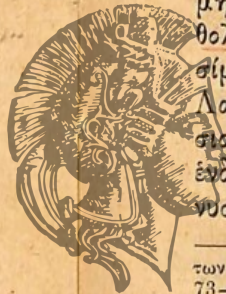 μη
θολ
σίμ
Λα
σια
ένα
νυσ
των
73-